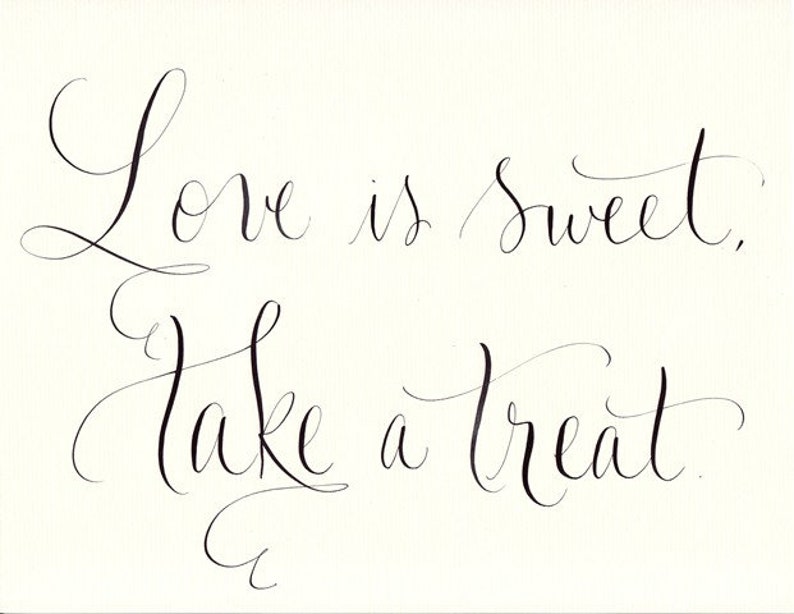 Love is sweet,
take a treat.